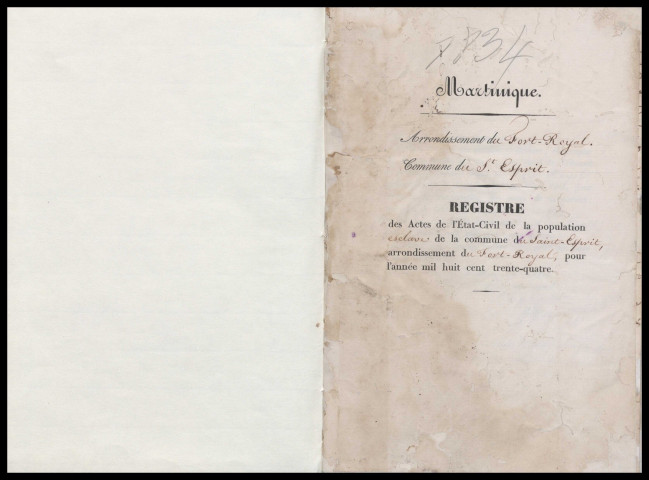 1834
Martinique.
Arrondissement du Fort-Royal.
Commune du St. Esprit.
REGISTRE
des Actes de l'État-Civil de la population
esclave de la commune du Saint-Esprit,
arrondissement du Fort-Royal, pour
l'année mil huit cent trente-quatre.